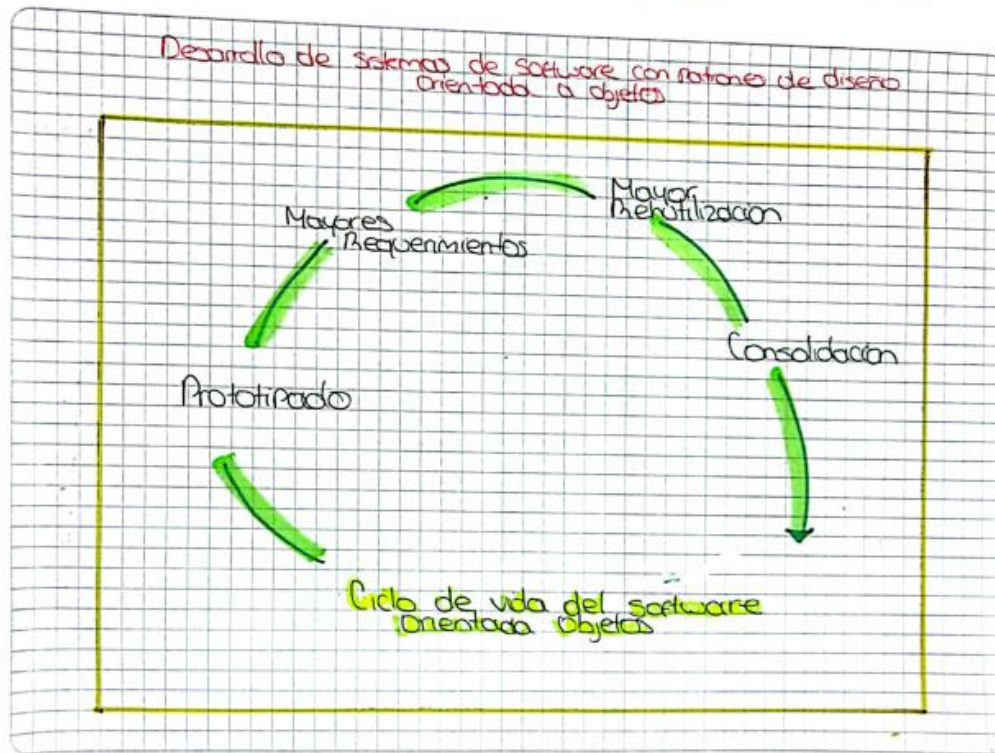 Desarrollo de sistemas de software con patrones de diseño
Orientada a objetos
Mayores
Requerimientos
Mayor
Rehutilización
Consolidacion
Prototipado
Ciclo de vida del software
Orientada Objetos